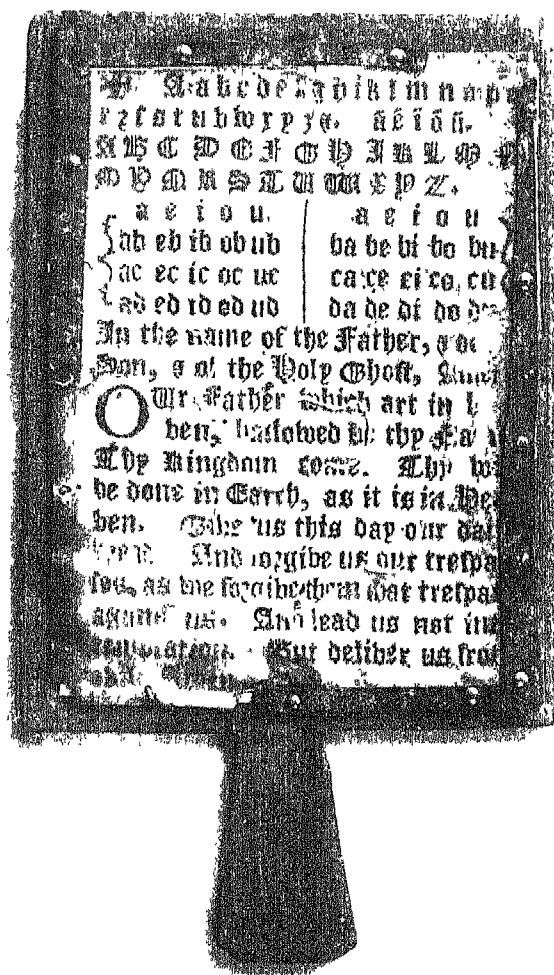 A a b c d e f g h i k l m n o p
r z s t u b w x y z &. a e i o u.
A B C D E F G H I K L M
O P Q R S T U W X Y Z.
a e i o u. a e i o u
ab eb ib ob ub ba be bi bo bu
ac ec ic oc uc ca ce ci co cu
ad ed id od ud da de di do du
In the name of the Father, &
Son, & of the Holy Ghost,
OUr Father which art in
ven, hallowed be thy
Thy Kingdom come. Thy
be done in Earth, as it is in Hea
ven. Give us this day our dai
And forgive us our trespas
ses, as we forgive them that trespas
against us. And lead us not in
temptation. But deliver us from